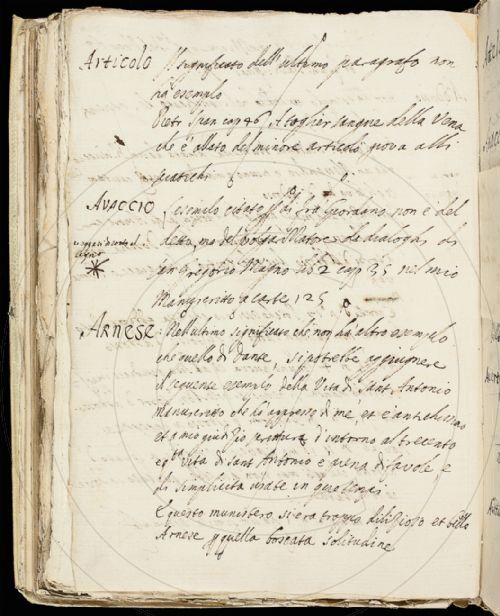 Articolo Il significato dell'ultimo paragrafo non
ha esempio
Pietr Span cap 46 A togher sangue della Vena
che è allato del minore articolo giova alli
sciatichi
AVACCIO L'esempio citato di Fra Giordano non è del
detto, ma del Matore de dialoghi di
san Gregorio Magno cap 35 nel mio
Manuscritto a carte 125
ARNESE: Nell'ultimo significato che non ha altro esempio
che quello di Dante, si potrebbe aggiugnere
il seguente esempio della Vita di Sant Antonio
manuscritto che ho appresso di me, et è antichissimo
et a mio giudizio, scrittura d'intorno al trecento
Vita di Sant Antonio è piena di favole, e
di simplicità usate in que tempi
E questo munistero si era troppo dilizioso et bello
Arnese quella boscata solitudine